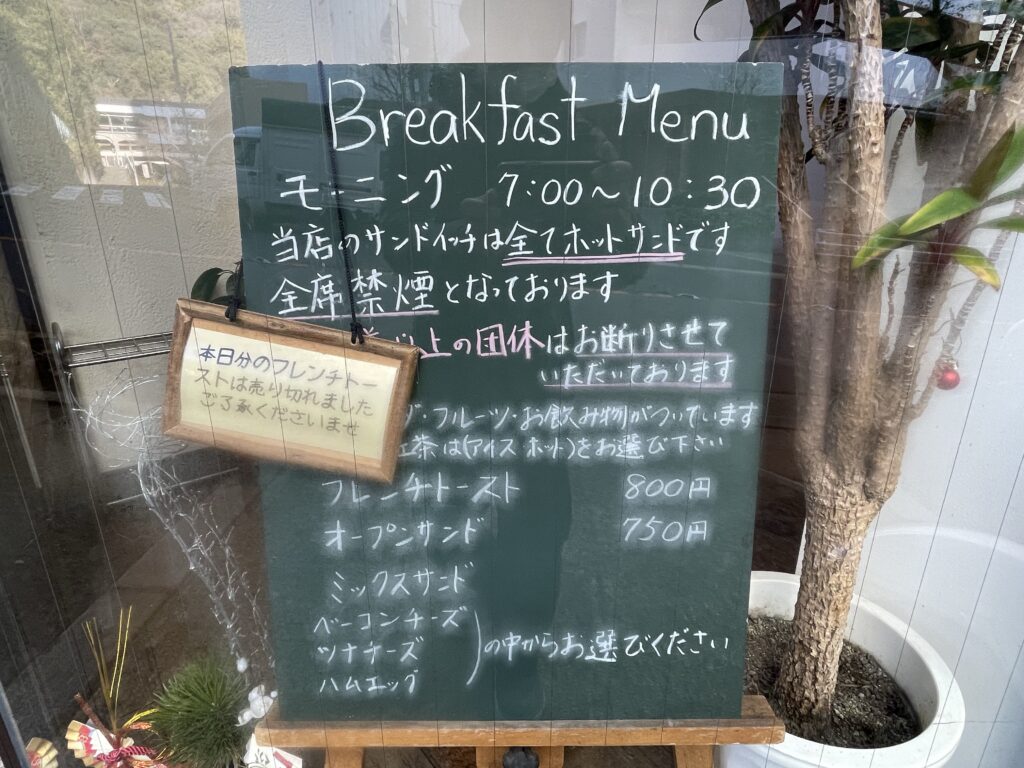 Breakfast Menu
モーニング 7:00〜10:30
当店のサンドイッチは全てホットサンドです
全席禁煙となっております
以上の団体はお断りさせて
いただいております
・フルーツ・お飲み物がついています
紅茶は(アイス ホット)をお選び下さい
フレンチトースト 800円
オープンサンド 750円
ミックスサンド
ベーコンチーズ
ツナチーズ
ハムエッグ
)の中からお選びください
本日分のフレンチトー
ストは売り切れました
ご了承くださいませ